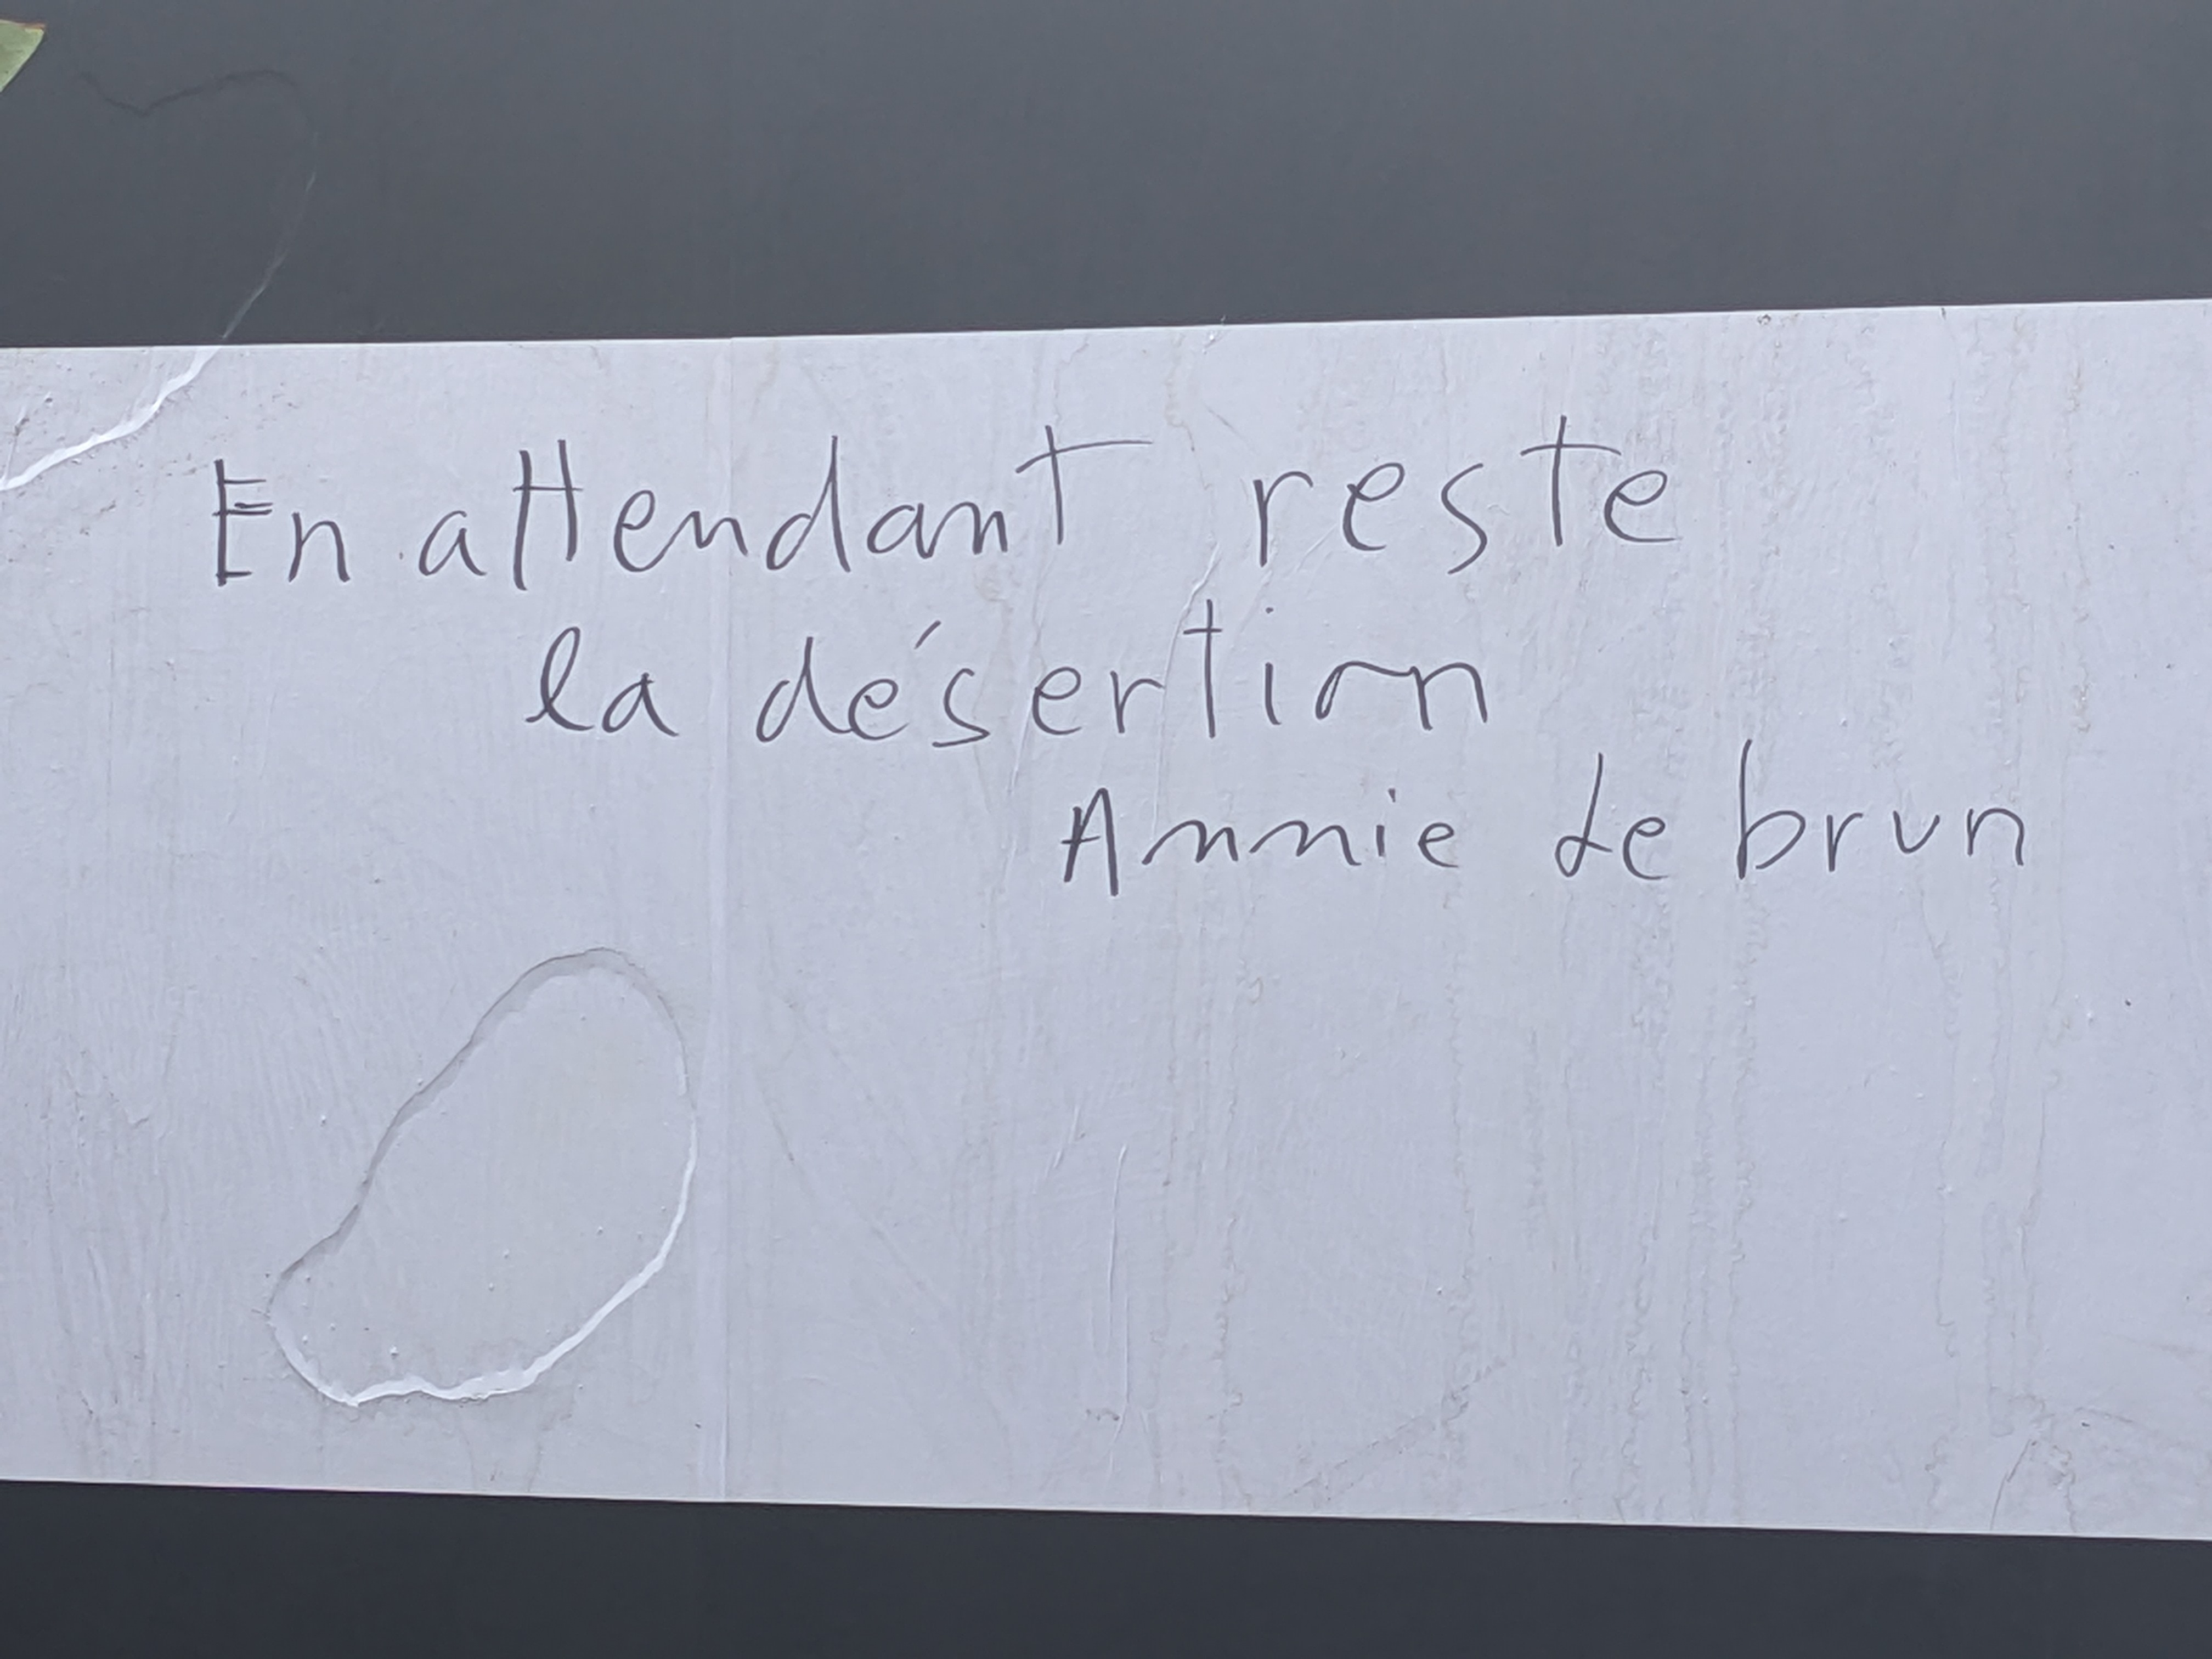 En attendant reste
la désertion
Annie le brun